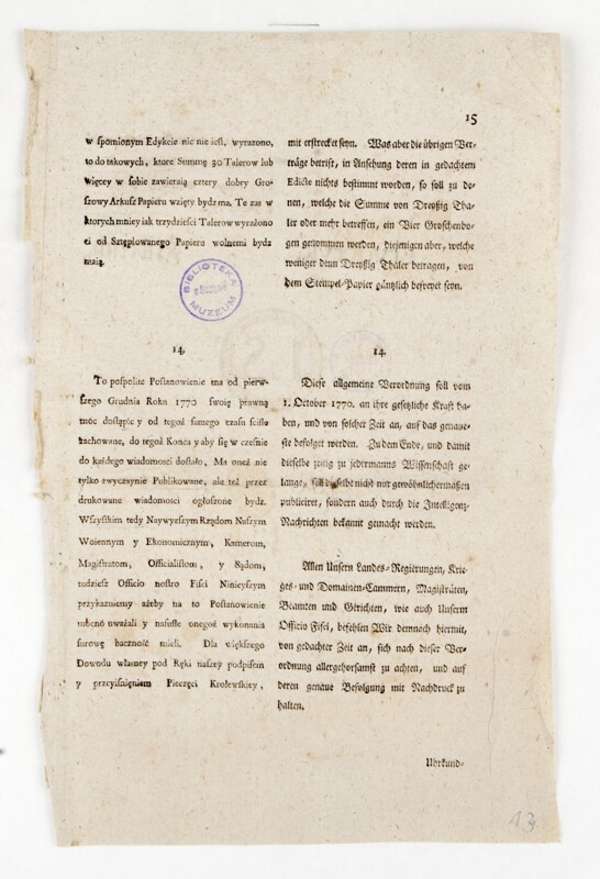 15
w spomionym Edykcie nic nie iest, wyrażono,
to do takowych, ktore Summę 30 Talerow lub
więcey w sobie zawieraią cztery dobry Gro-
szowy Arkusz Papieru wzięty bydz ma, Te zas w
ktorych mniey iak trzydzieści Talerow wyrażono
ci od Sztęplowanego Papieru wolnemi bydz
maią.
BIBLIOTEKA
MUZEUM
14.
To pospolite Postanowienie ma od pierw-
szego Grudnia Roku 1770 swoię prawną
moc dostąpić y od tegoż samego czasu ściśle
zachowane, do tegoż Konca y aby się w cześnie
do każdego wiadomości dostało, Ma oneż nie
tylko zwyczaynie Publikowane, ale też przez
drukowane wiadomości ogłoszone bydz.
Wszyskim tedy Naywyższym Rządom Naszym
Woiennym y Ekonomicznym, Kamerom,
Magistratom, Officialistom, y Sądom,
tudziesz Officio nostro Fisci Nineyszym
przykazuiemy ażeby na to Postanowienie
uważali y onegoż wykonania
surowę baczność mieli. Dla większego
Dowodu własney pod Ręki naszey podpisem
y przyiśnięniem Pieczęci Krolewskiey,
mit erstrecket seyn. Was aber die übrigen Ver-
träge betrift, in Ansehung deren in gedachtem
Edicte nichts bestimmt worden, so soll zu de-
nen, welche die Summe von Dreyßig Tha-
ler oder mehr betreffen, ein Vier Groschenbo-
gen genommen werden, diejenigen aber, welche
weniger denn Dreyßig Thaler betragen, von
dem Stempel-Papier gäntzlich befreyet seyn.
14.
Diese allgemeine Verordnung soll vom
1. October 1770. an ihre gesetzliche Kraft ha-
ben, und von solcher Zeit an, auf das genaue-
ste befolget werden. Zu dem Ende, und damit
dieselbe zeitig zu jedermanns Wissenschaft ge-
lange, soll dieselbe nicht nur gewöhnlichermaßen
publiciret, sondern auch durch die Intelligenz-
Nachrichten bekannt gemacht werden.
Allen Unsern Landes-Regierungen, Krie-
ges- und Domainen-Cammern, Magisträten,
Beamten und Gerichten, wie auch Unserm
Officio Fisci, befehlen Wir demnach hiermit,
von gedachter Zeit an, sich nach dieser Ver-
ordnung allergehorsamst zu achten, und auf
deren genaue Befolgung mit Nachdruck zu
halten.
Uhrkund-
13